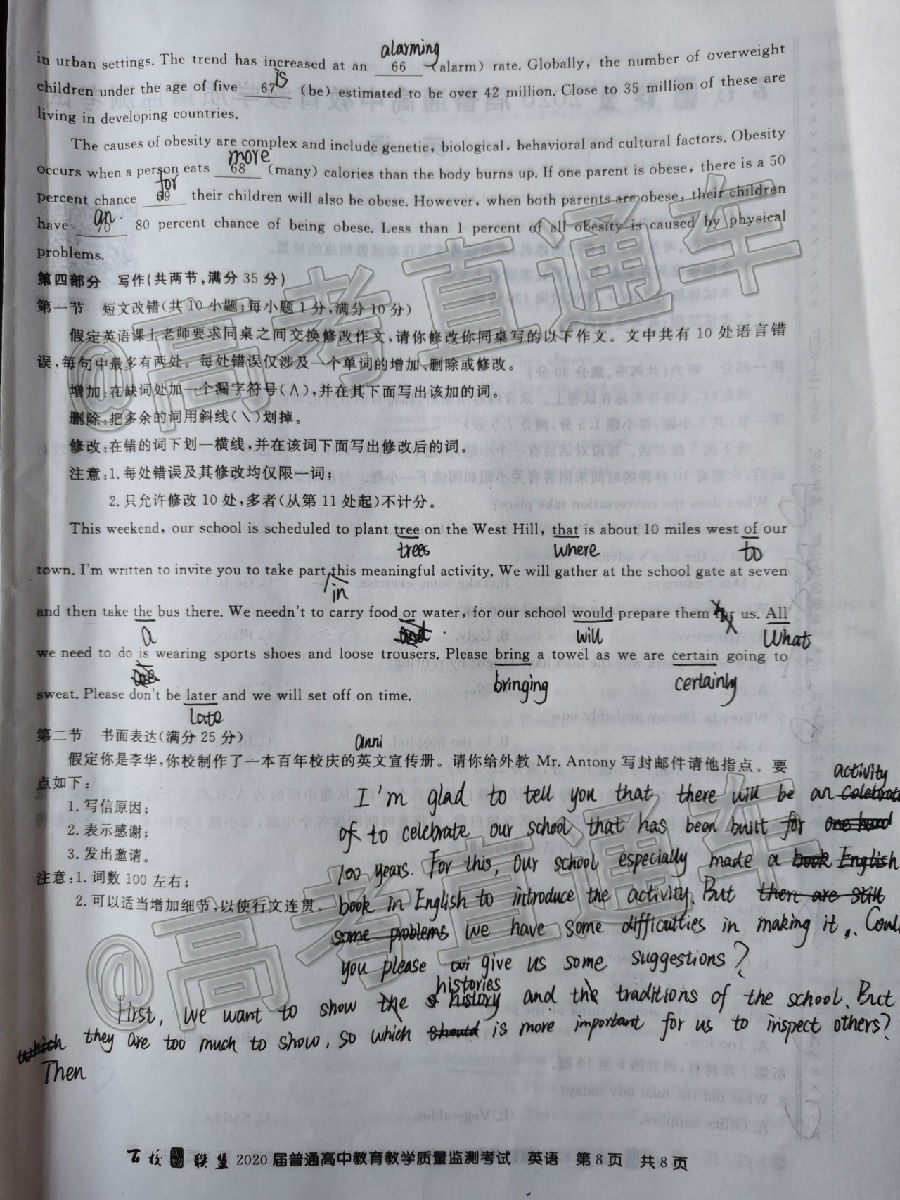 alarming
in urban settings. The trend has increased at an 66 (alarm) rate. Globally, the number of overweight
is
children under the age of five 67 (be) estimated to be over 42 million. Close to 35 million of these are
living in developing countries.
The causes of obesity are complex and include genetic, biological, behavioral and cultural factors. Obesity
more
occurs when a person eats 68 (many) calories than the body burns up. If one parent is obese, there is a 50
for
percent chance 69 their children will also be obese. However, when both parents are obese, their children
an
have 70 80 percent chance of being obese. Less than 1 percent of all obesity is caused by physical
problems.
第四部分 写作(共两节,满分 35 分)
第一节 短文改错(共 10 小题;每小题 1 分,满分 10 分)
假定英语课上老师要求同桌之间交换修改作文,请你修改你同桌写的以下作文。文中共有 10 处语言错
误,每句中最多有两处。每处错误仅涉及一个单词的增加、删除或修改。
增加:在缺词处加一个漏字符号(∧),并在其下面写出该加的词。
删除:把多余的词用斜线(\)划掉。
修改:在错的词下划一横线,并在该词下面写出修改后的词。
注意:1. 每处错误及其修改均仅限一词;
2. 只允许修改 10 处,多者(从第 11 处起)不计分。
This weekend, our school is scheduled to plant tree on the West Hill, that is about 10 miles west of our
trees where to
town. I'm written to invite you to take part this meaningful activity. We will gather at the school gate at seven
in
and then take the bus there. We needn't to carry food or water, for our school would prepare them for us. All
a will What
we need to do is wearing sports shoes and loose trousers. Please bring a towel as we are certain going to
bringing certainly
sweat. Please don't be later and we will set off on time.
late
第二节 书面表达(满分 25 分)
anni
假定你是李华,你校制作了一本百年校庆的英文宣传册。请你给外教 Mr. Antony 写封邮件请他指点。要
点如下:
1. 写信原因;
2. 表示感谢;
3. 发出邀请。
注意:1. 词数 100 左右;
2. 可以适当增加细节,以使行文连贯。
activity
I'm glad to tell you that there will be an
of to celebrate our school that has been built for
100 years. For this, our school especially made a book English
book in English to introduce the activity. But there are still
some problems we have some difficulties in making it. Could
you please give us some suggestions?
histories
First, we want to show the history and the traditions of the school. But
which they are too much to show, so which should is more important for us to inspect others?
Then
百校联盟 2020 届普通高中教育教学质量监测考试 英语 第 8 页 共 8 页
@高考直通车
@高考直通车